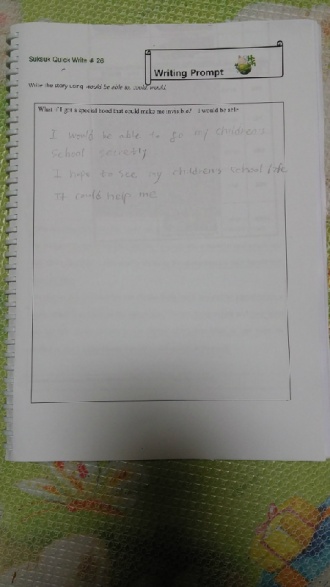 Quick Write # 26
Writing Prompt
Write the story using would be able to, could, would.
What if I got a special hood that could make me invisible? I would be able
I would be able to go my children's
school secretly
I hope to see my children's school life
It could help me